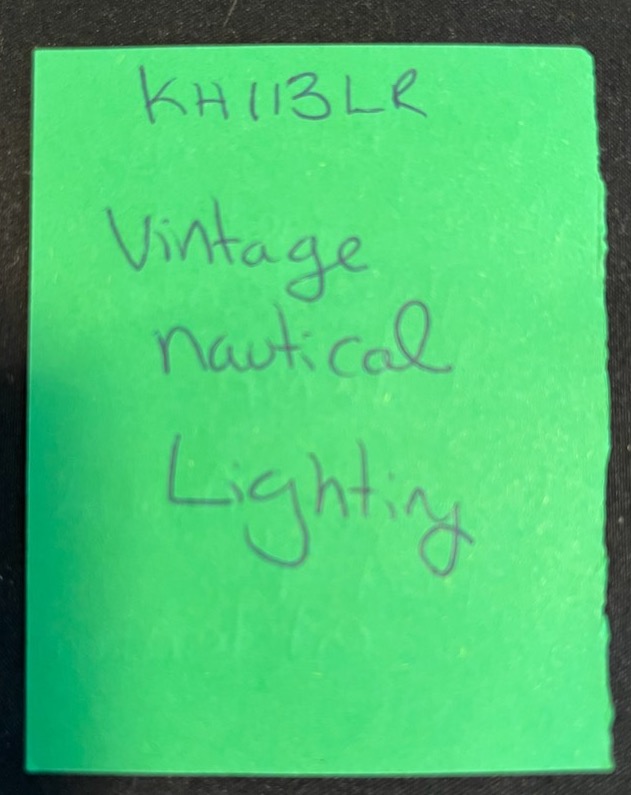 KH113LR
Vintage
nautical
Lighting